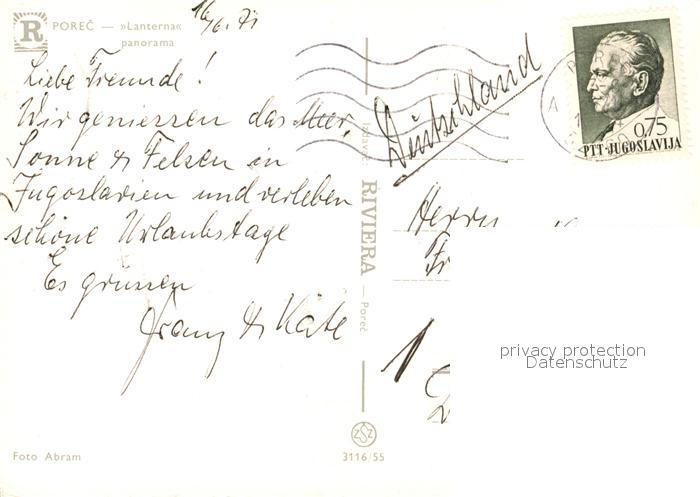 R
POREČ — »Lanterna«
panorama
16/6. 71
Liebe Freunde!
Wir geniessen das Meer,
Sonne & Felsen in
Jugoslavien und verleben
schöne Urlaubstage
Es grüssen
Franz & Käte
Deutschland
Herrn
Fr
0,75
PTT-JUGOSLAVIJA
RIVIERA — Poreč
privacy protection
Datenschutz
Foto Abram
3116/55